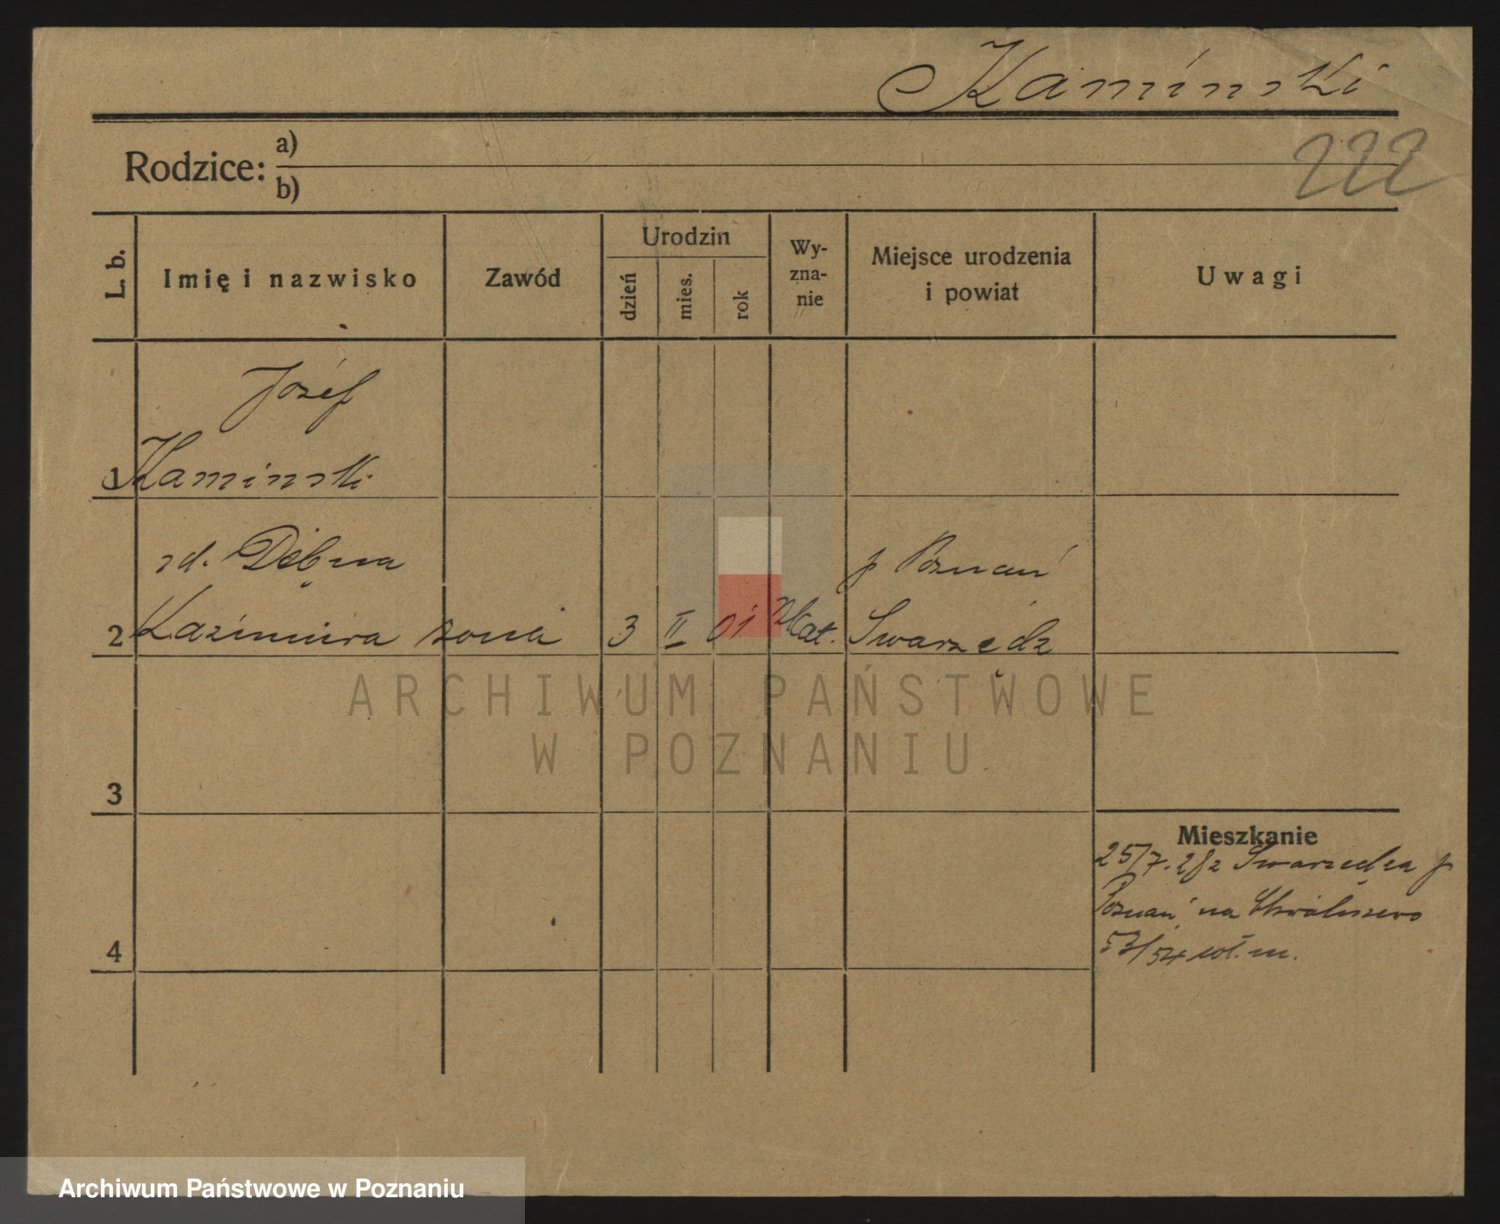 Kaminski
222
Rodzice: a)
b)
L. b.
Imię i nazwisko
Zawód
Urodzin
dzień
mies.
rok
Wy-
zna-
nie
Miejsce urodzenia
i powiat
Uwagi
Józef
1 Kaminski
zd. Dębna p Poznań
2 Kazimiera żona 3 II 01 rzkat. Swarzędz
ARCHIWUM PAŃSTWOWE
W POZNANIU
3
Mieszkanie
25/7. 28 z Swarzędza p
Poznań na Chwaliszewo
4
53/54 wł. m.
Archiwum Państwowe w Poznaniu